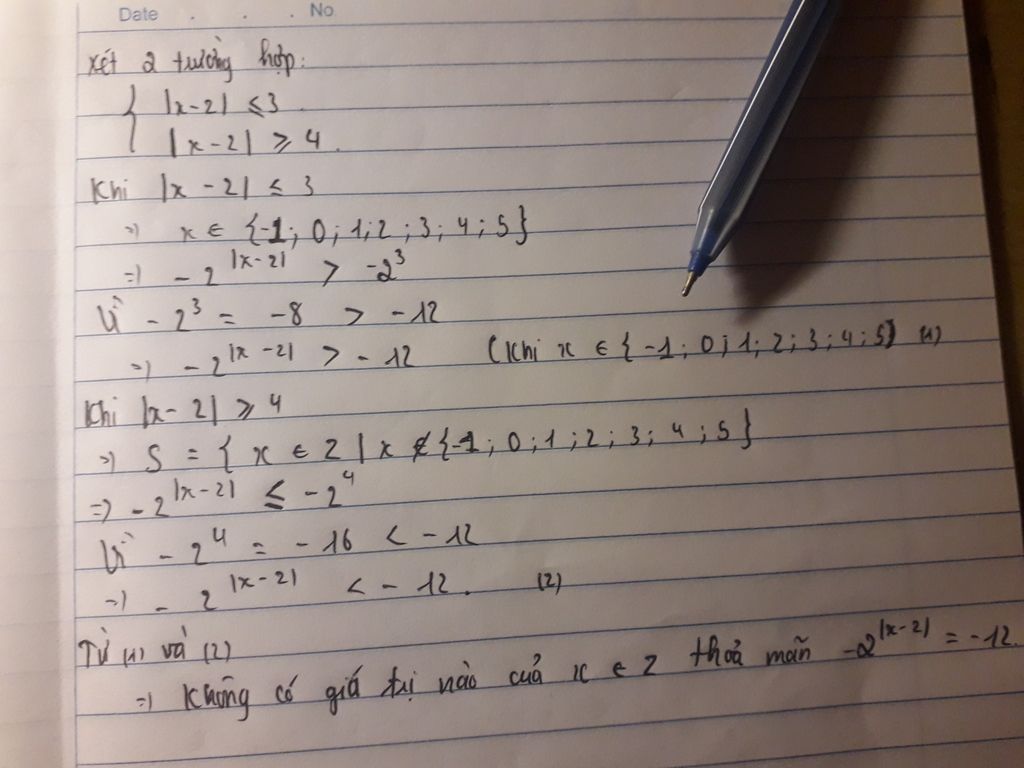 Date . . . No
Xét 2 trường hợp:
{ |x-2| ≤ 3.
|x-2| ≥ 4.
Khi |x - 2| ≤ 3
=> x ∈ {-1; 0; 1; 2; 3; 4; 5}
=> -2^|x-2| > -2^3
Vì -2^3 = -8 > -12
=> -2^|x-2| > -12 (Khi x ∈ {-1; 0; 1; 2; 3; 4; 5} (1)
Khi |x-2| ≥ 4
=> S = { x ∈ Z | x ∉ {-1; 0; 1; 2; 3; 4; 5}
=> -2^|x-2| ≤ -2^4
Vì -2^4 = -16 < -12
=> -2^|x-2| < -12. (2)
Từ (1) và (2)
=> Không có giá trị nào của x ∈ Z thoả mãn -2^|x-2| = -12.